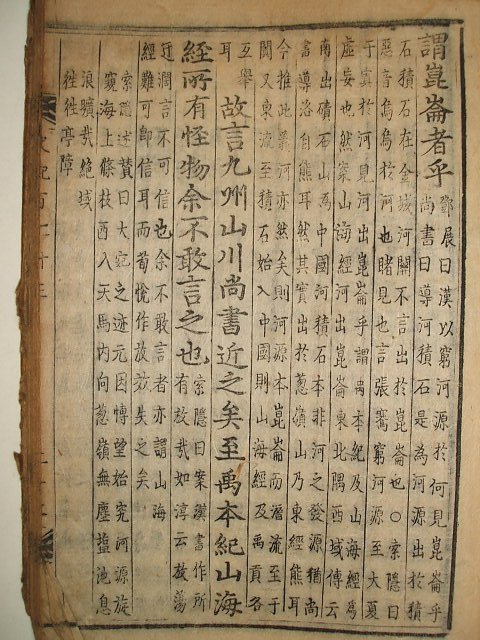 謂崑崙者乎
鄧展曰漢以窮河源於何見崑崙乎
尚書曰導河積石是為河源出於積
石積石在金城河關不言出於崑崙也○索隱曰
惡音烏烏於河也睹見也言張騫窮河源至大夏
于窴於河見河出崑崙乎謂禹本紀及山海經為
虛妄也然案山海經河出崑崙東北隅西域傳云
南出磧石山為中國河積石本非河之發源猶尚
書導洛自熊耳然其實出於蔥嶺山乃東經熊耳
今推此義河亦然矣則河源本崑崙而潛流至于
闐又東流至積石始入中國則山海經及禹貢各
互舉
耳
故言九州山川尚書近之矣至禹本紀山海
經所有怪物余不敢言之也
索隱曰案漢書作所
有放哉如淳云放蕩
迂闊言不可信也余不敢言者亦謂山海
經難可即信耳而荀悅作放效失之矣
索隱述贊曰大宛之迹元因博望始究河源旋
窺海上條枝西入天馬內向蔥嶺無塵鹽池息
浪曠哉絕域
往往亭障